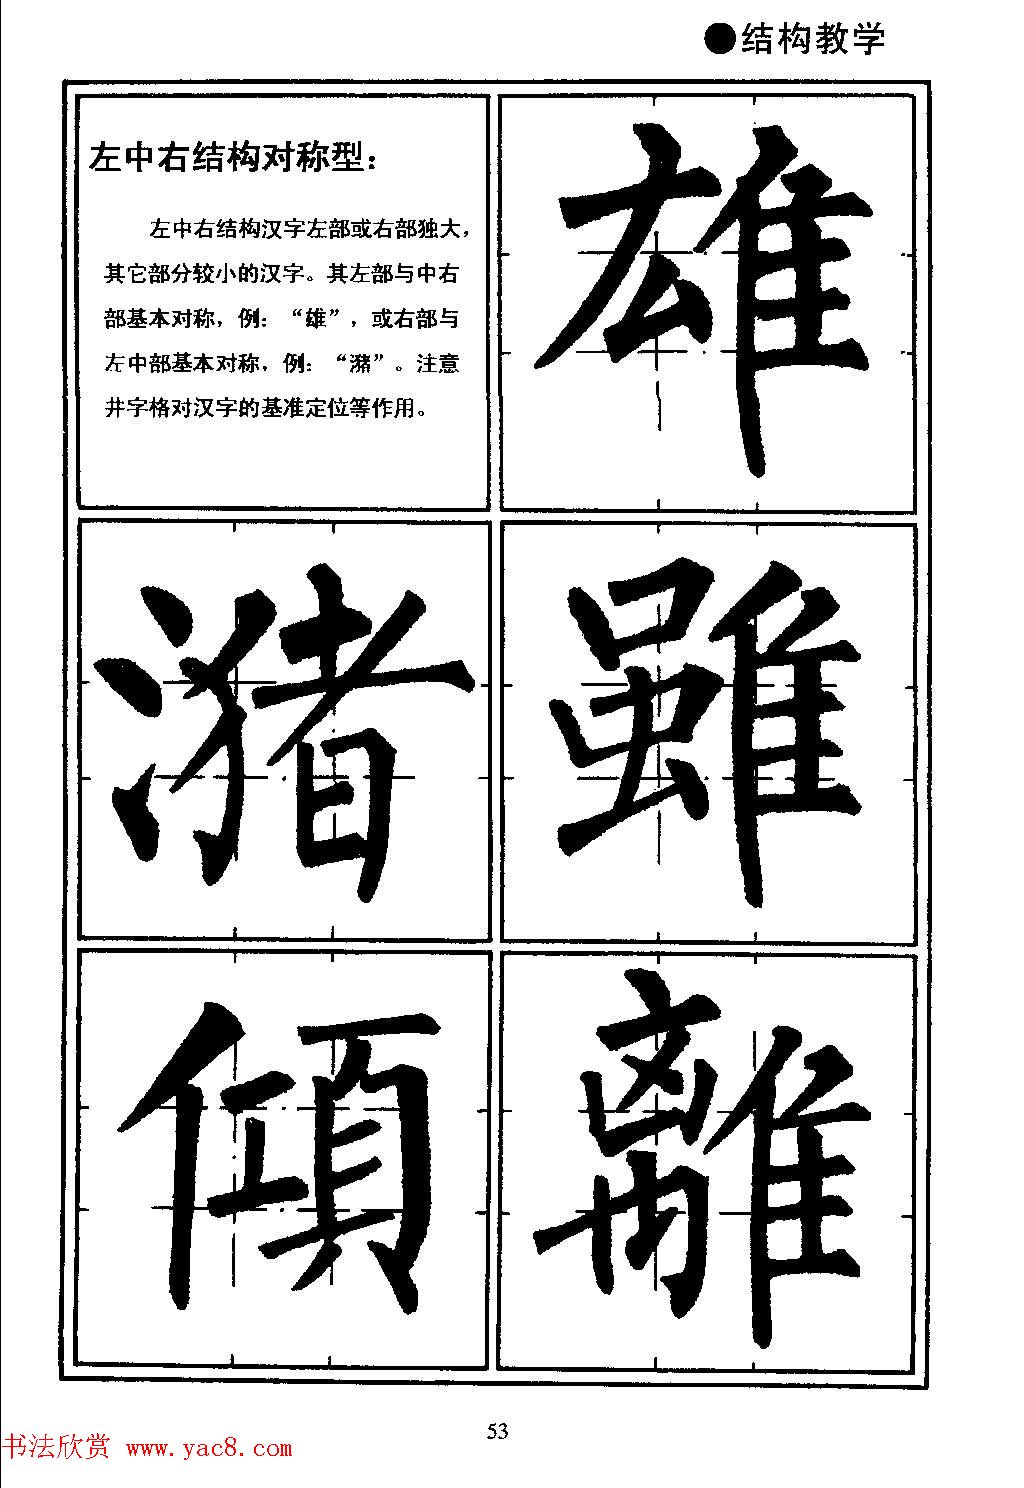 ●结构教学
左中右结构对称型：
左中右结构汉字左部或右部独大，
其它部分较小的汉字。其左部与中右
部基本对称，例：“雄”，或右部与
左中部基本对称，例：“潴”。注意
井字格对汉字的基准定位等作用。
雄
潴 雖
傾 離
53
书法欣赏 www.yac8.com